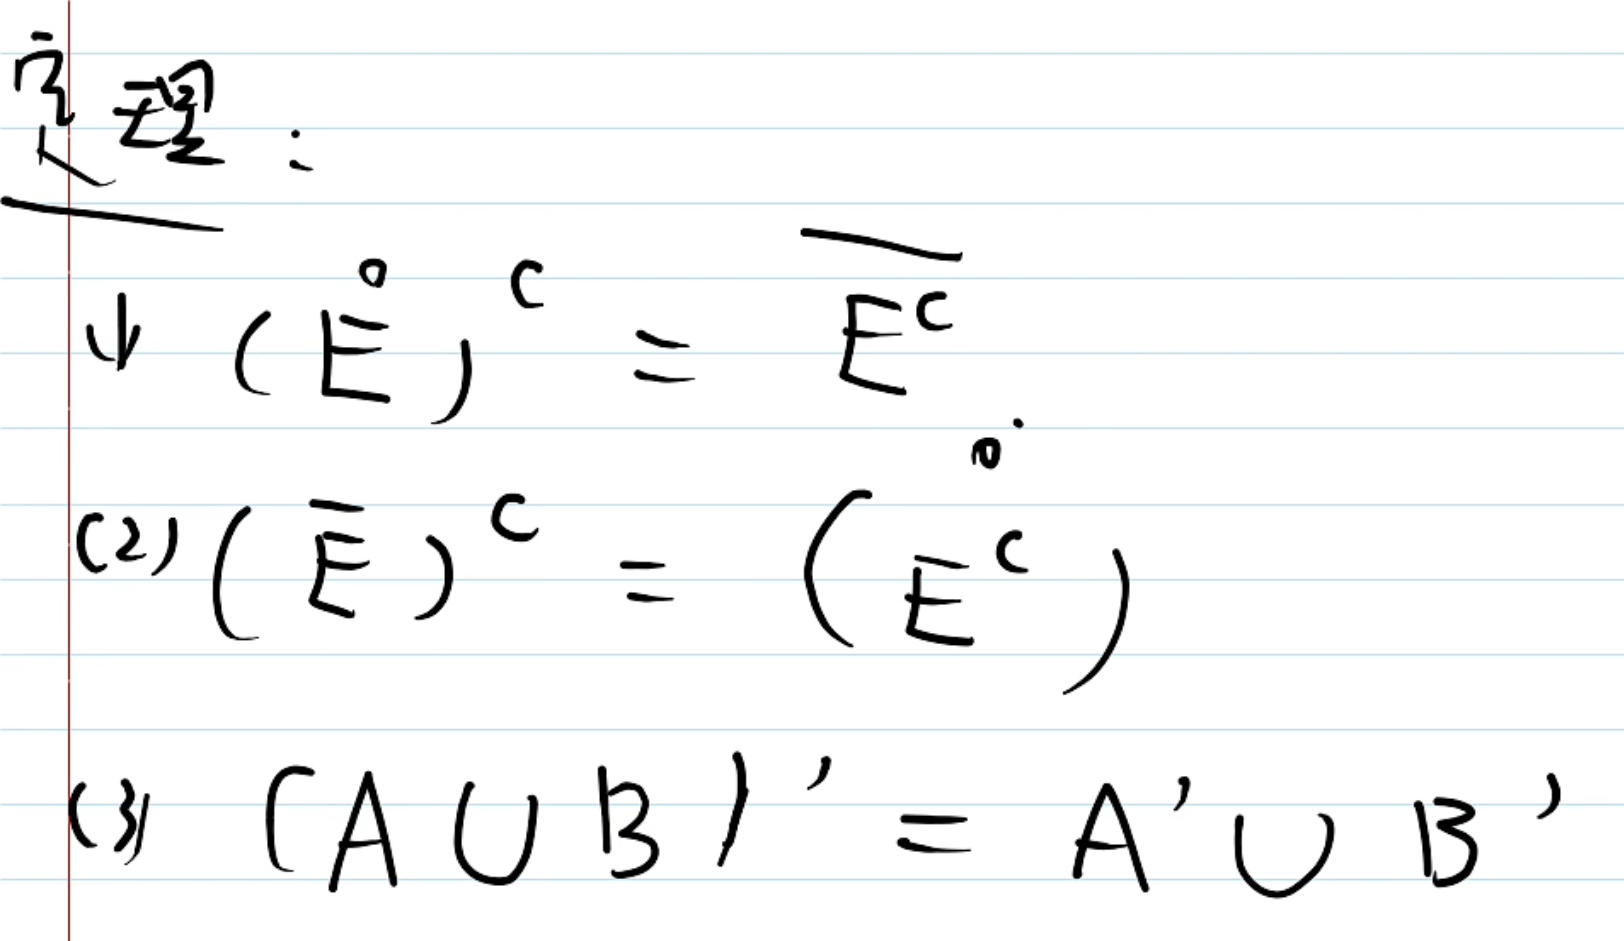 定理:
(1) (E̊)ᶜ = \overline{Eᶜ}
(2) (Ē)ᶜ = (Eᶜ)°
(3) (A∪B)' = A'∪B'